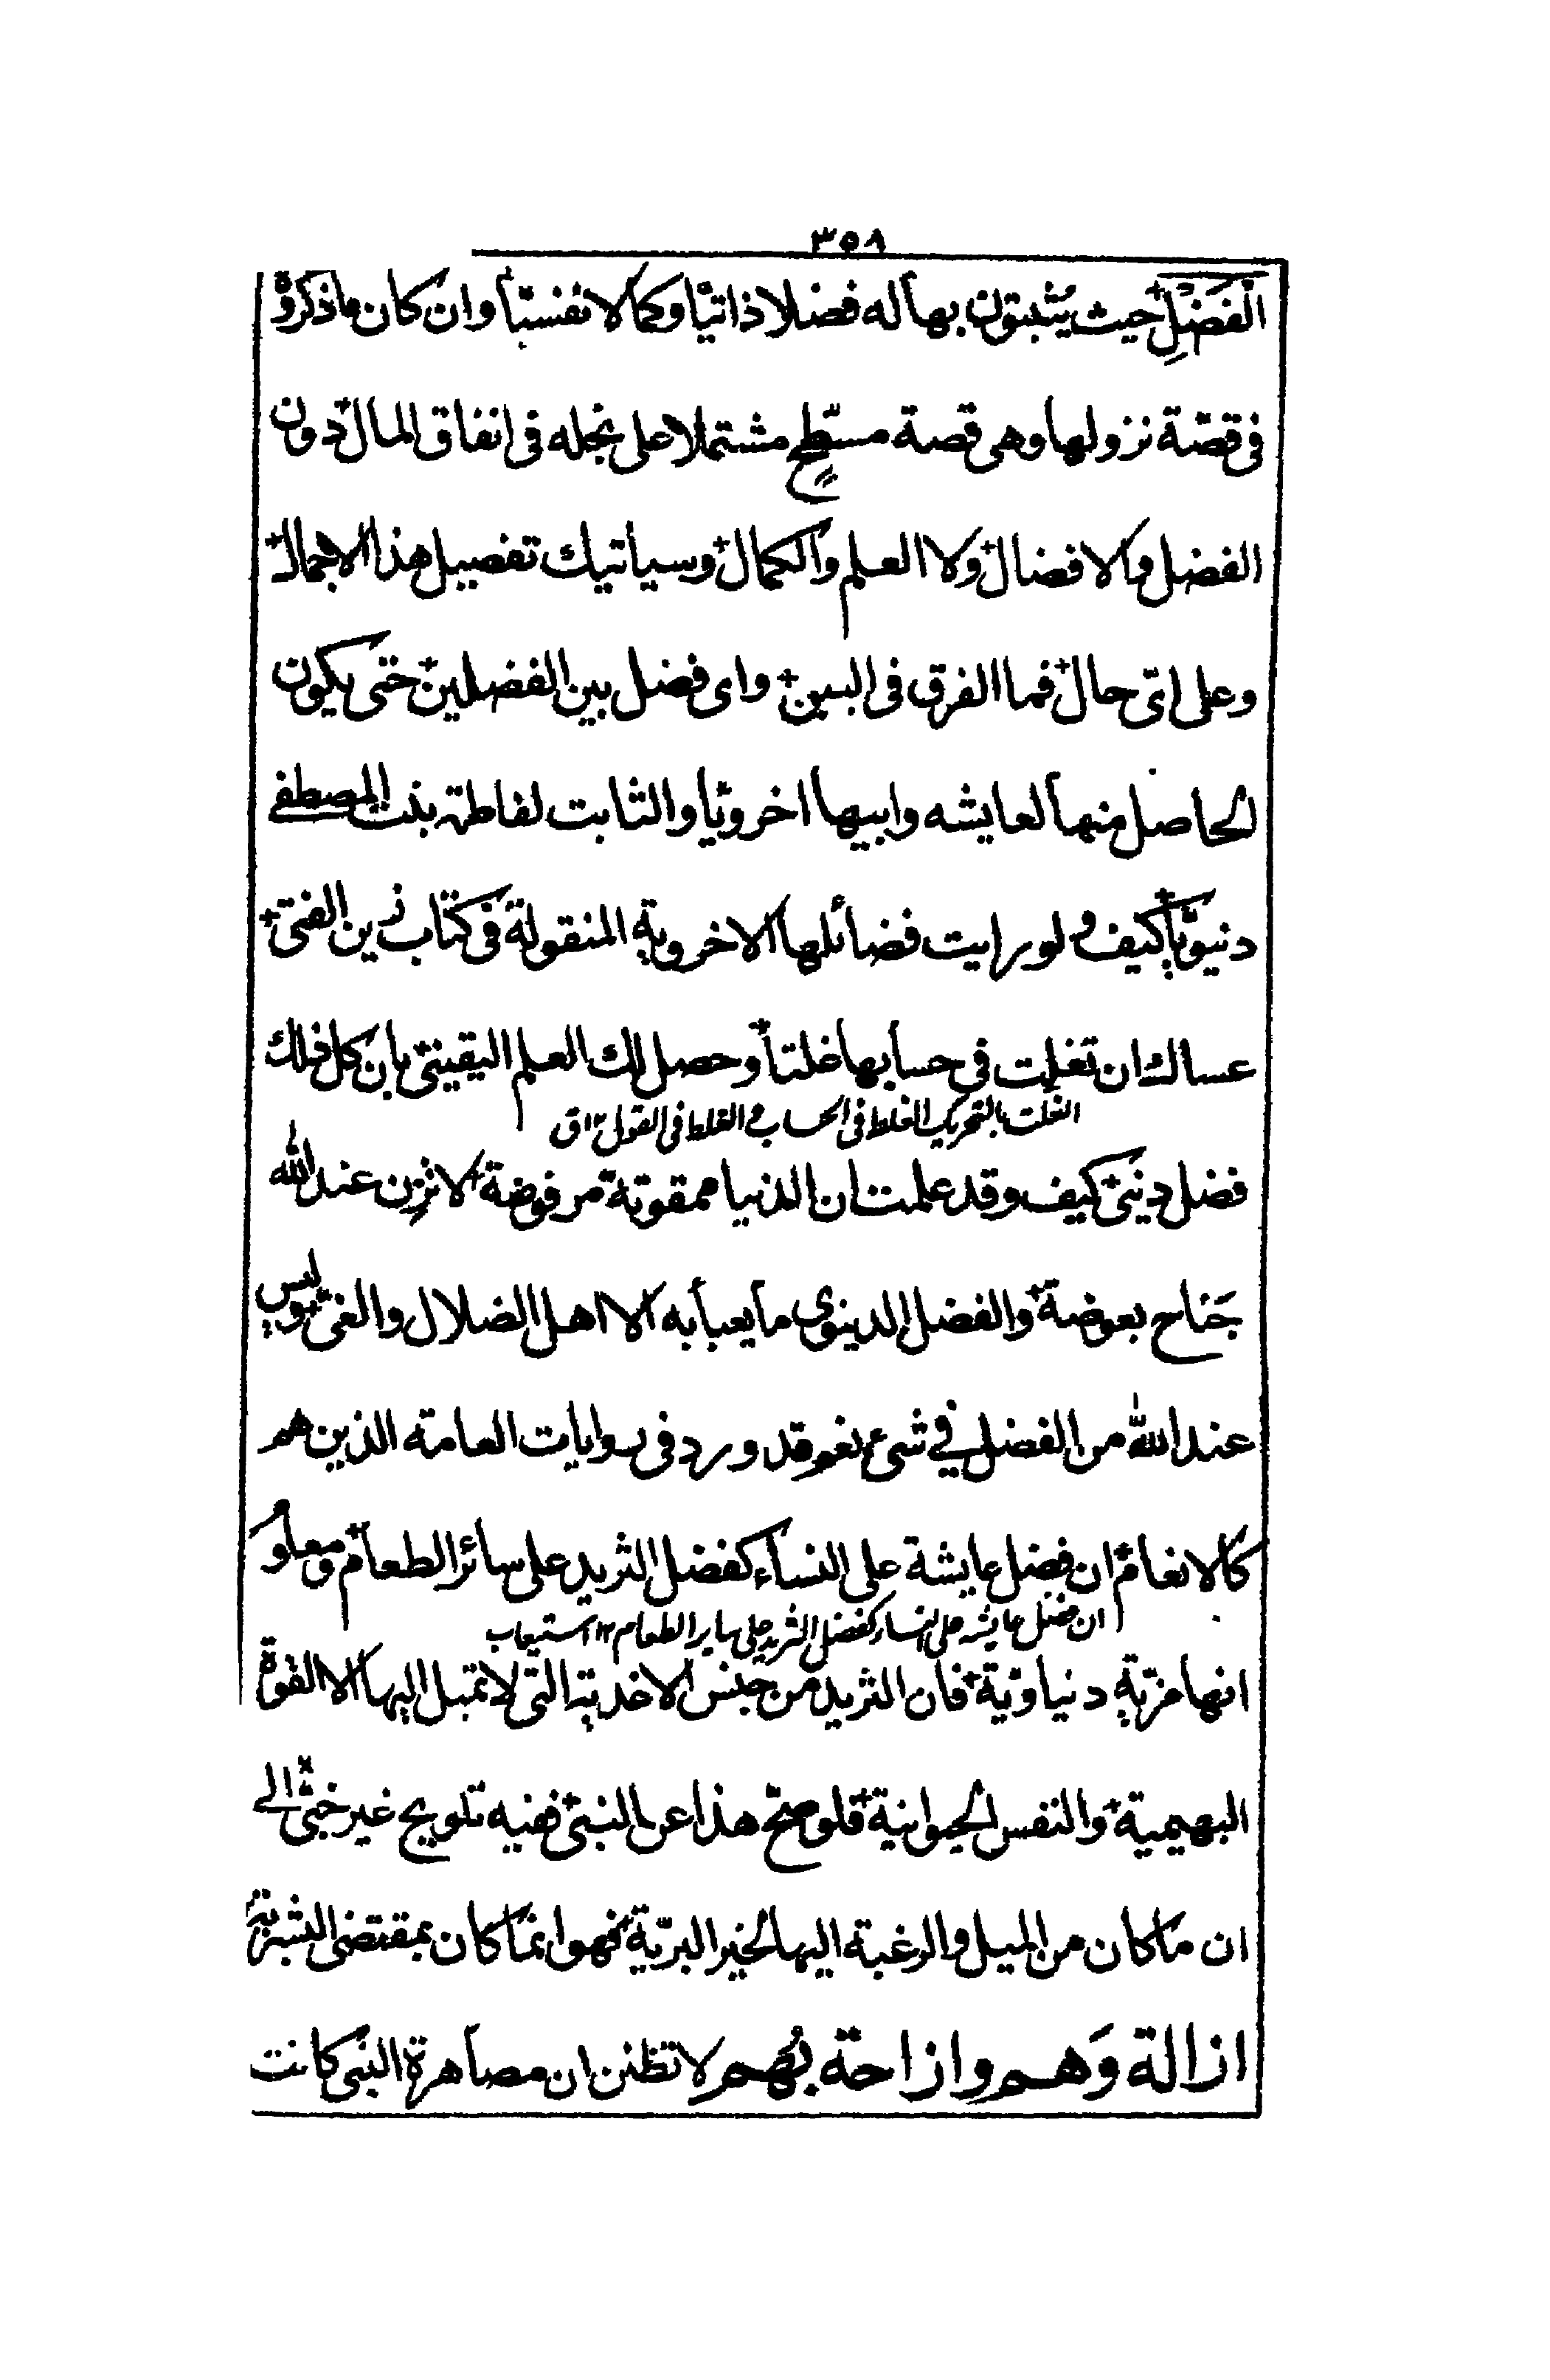 ٣٥٨
الفَضْلِ حيث يثبتون بها له فضلا ذاتيّا وكمالا نفسيّا وان كان ما ذكروه
فى قصّة نزولها وهى قصة مسطَح مشتملا على بخله فى انفاق المال دون
الفضل والافضال ولا العلم والكمال وسياتيك تفصيل هذا الاجمال
وعلى اىّ حال فما الفرق فى البين واى فضل بين الفضلين حتى يكون
الحاصل منها لعايشه وابيها اخرويّا والثابت لفاطمة بنت المصطفى
دنيويّا كيف ولو رايت فضائلها الاخروية المنقولة فى كتاب زين الفتى
عساك ان تغلِت فى حسابها غلتا وحصل لك العلم اليقينىّ بان كل ذلك
الغلت بالتحريك الغلط فى الحساب والغلط فى القول ١٢ ق
فضل دينىّ كيف وقد علمت ان الدنيا ممقوتة مرفوضة لا تزن عند الله
جَناح بعوضة والفضل الدينوى ما يعبأ به الا اهل الضلال والغىّ وليس
عند الله من الفضل في شىء نعم قد ورد فى روايات العامة الذين هم
كالانعام ان فضل عايشة على النساء كفضل الثريد على سائر الطعام ومعلوم
ان فضل عايشه على النساء كفضل الثريد على ساير الطعام ١٢ استيعاب
انها مزية دنياويّة فان الثريد من جنس الاغذية التى لا تميل اليها الا القوة
البهيمية والنفس الحيوانية فلو صحّ هذا عن النبىّ ففيه تلويح غير خفىّ الى
ان ما كان من الميل والرغبة اليها لخير البريّة فهو انما كان بمقتضى البشرية
ازالة وَهم وازاحة بُهم لا تظنن ان مصاهرة النبى كانت